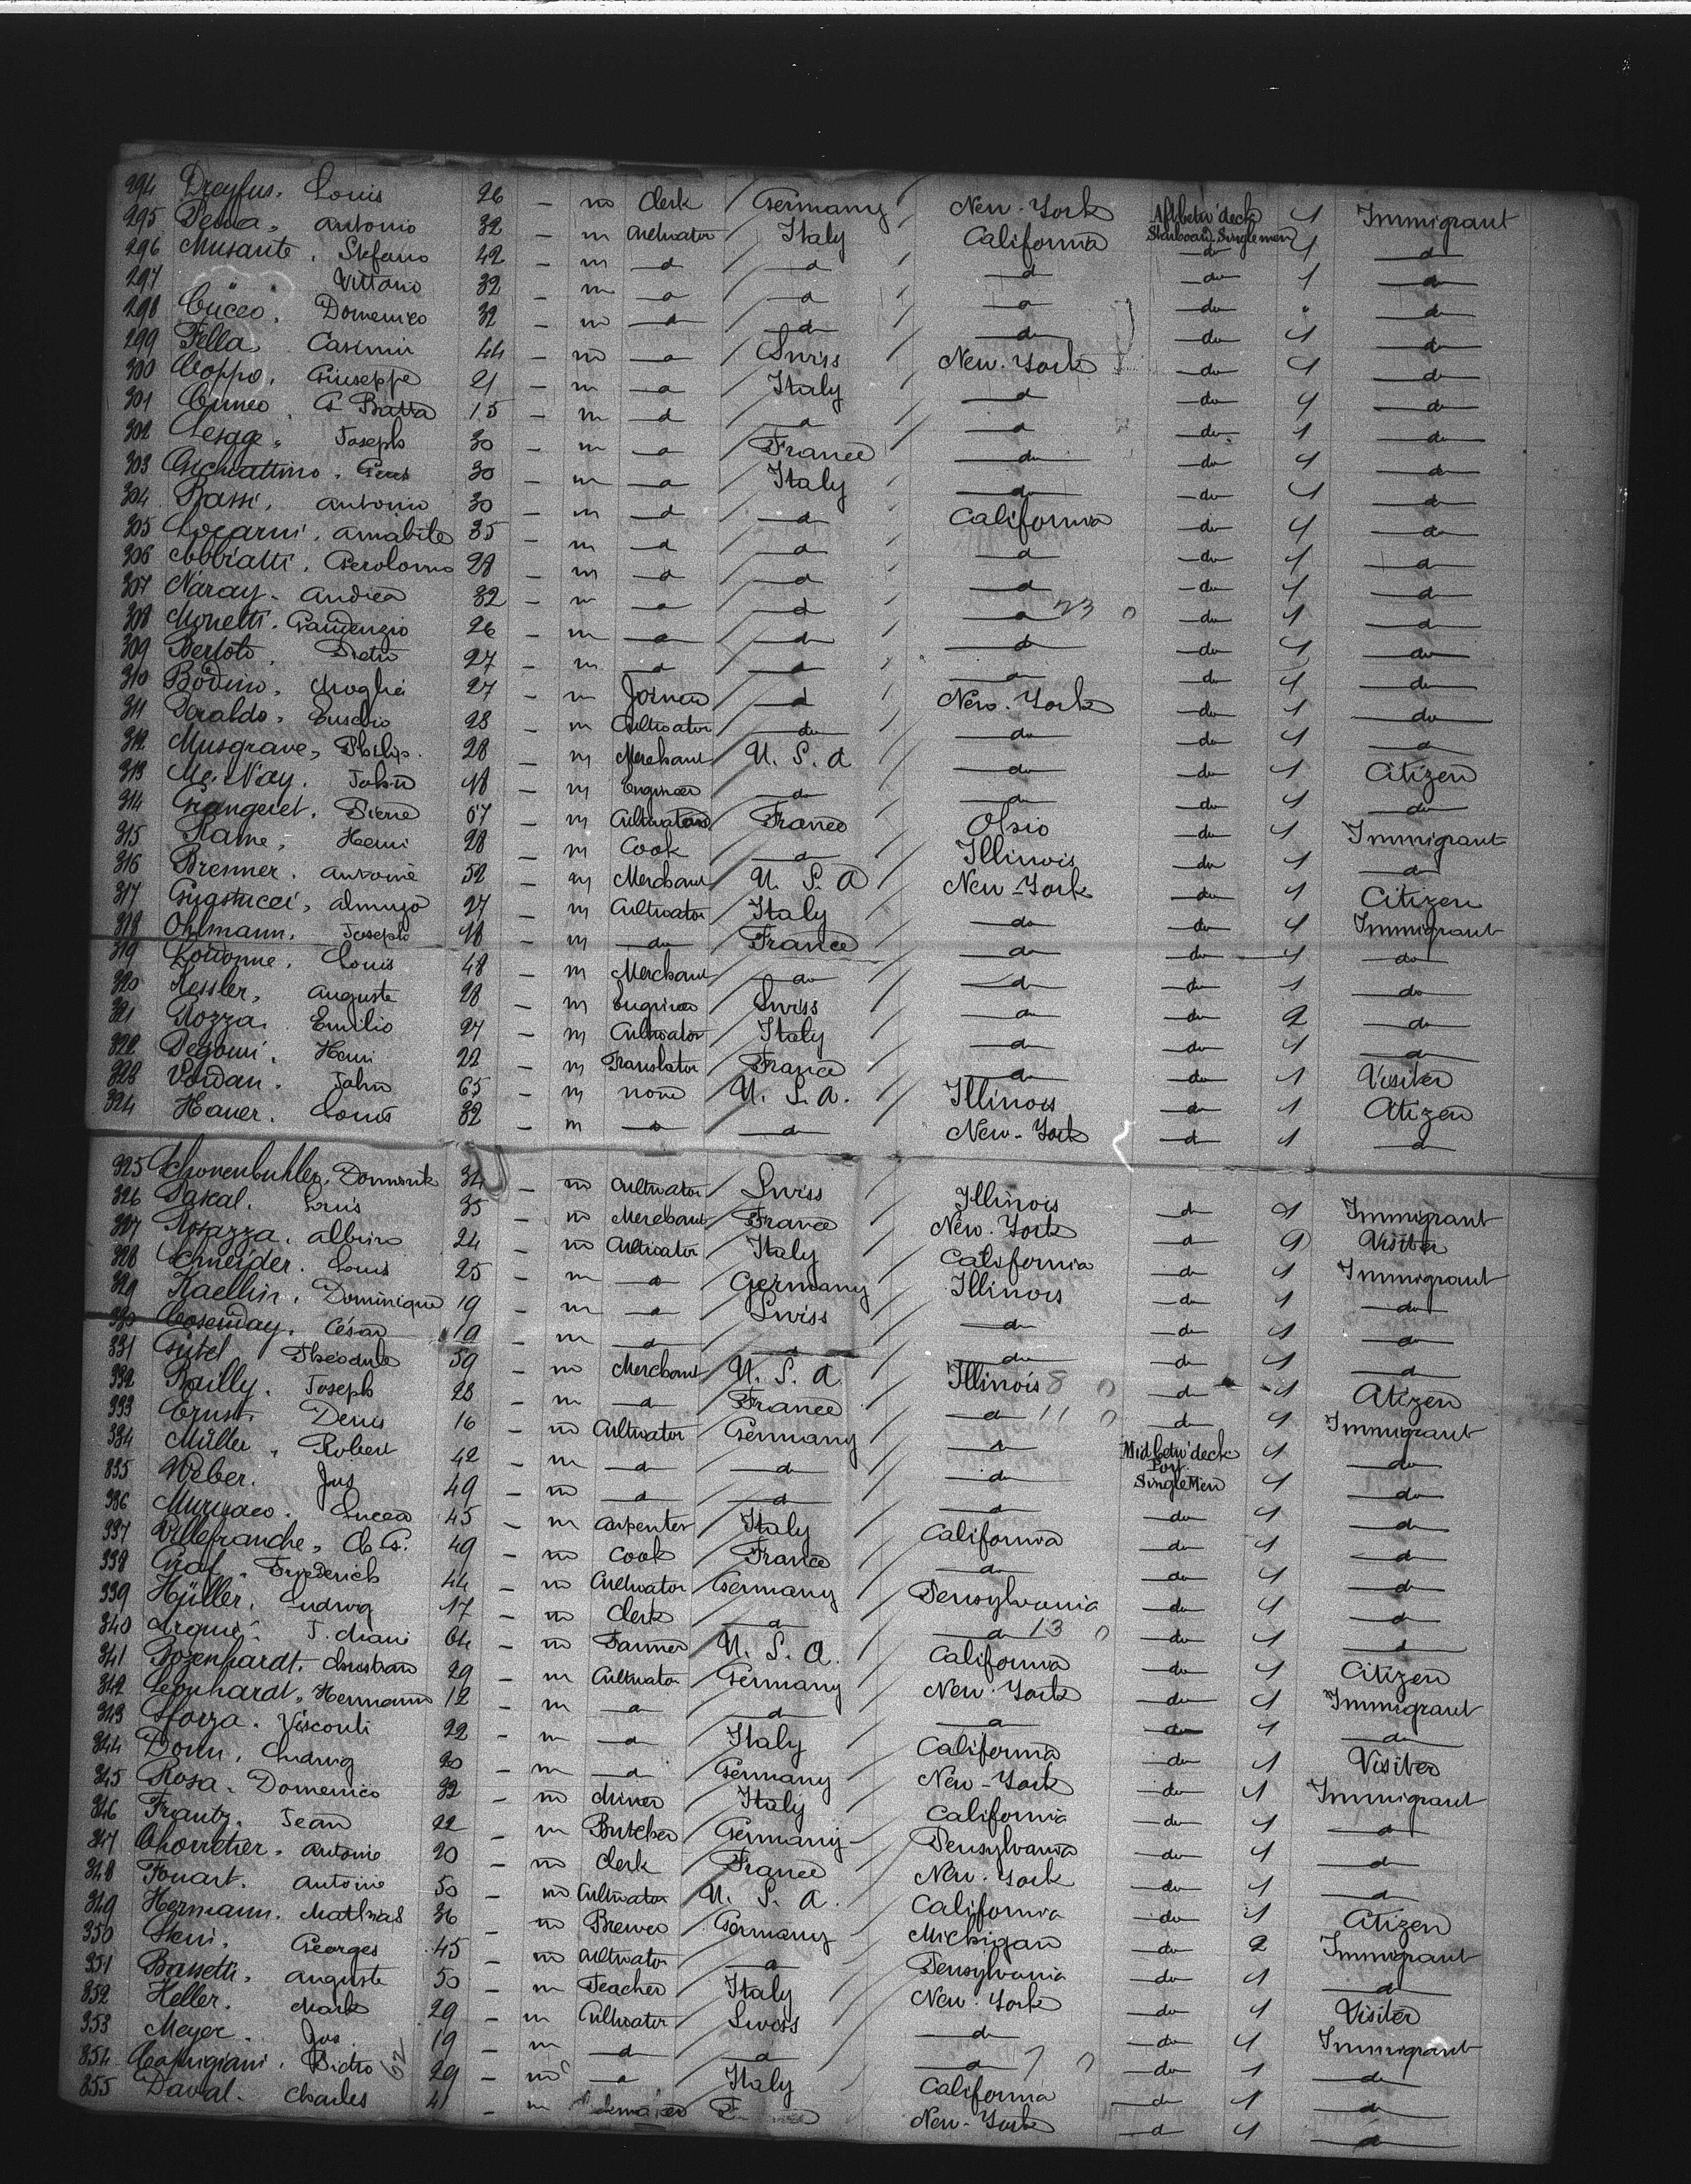 294 Dreyfus. Louis 26 - m Clerk / Germany / New-York Aft betw deck 1 Immigrant
295 Penna, Antonio 32 - m Cultivator / Italy / California Starboard Single men 1 d
296 Musante, Stefano 42 - m d d / d do 1 d
297 " " Vittorio 32 - m d d / d do 1 d
298 Cuceo, Domenico 32 - m d do / do do " d
299 Fella, Casimir 44 - m d / Swiss / New-York do 1 d
300 Coppo, Giuseppe 21 - m d / Italy / d do 1 d
301 Cuneo, G Batta 15 - m d d / d do 1 do
302 Lesage, Joseph 30 - m d / France / do do 1 do
303 30 - m d / Italy / do do 1 d
304 Bassi, Antonio 30 - m d d / California do 1 d
305 Locarni, Amabile 35 - m d d / d do 1 d
306 Abbiatti, Gerolomo 28 - m d d / d do 1 d
307 Naray. Andrea 32 - m d d / d 23 0 do 1 d
308 Monetti. Gaudenzio 26 - m d d / d do 1 do
309 Bertoto, Pietro 27 - m d d / d do 1 do
310 Bodino, 27 - m Joiner / d / New-York do 1 do
311 Peraldo, Eusebio 28 - m Cultivator / do / do do 1 d
312 Musgrave, Philip. 28 - m Merchant / U. S. A / do do 1 Citizen
313 Mc Nay. John 48 - m Engineer / do / do do 1 do
314 Grangeret. Pierre 57 - m Cultivator / France / Ohio do 1 Immigrant
315 Rame, Henri 28 - m Cook / d / Illinois do 1 d
316 Brenner. Antoine 52 - m Merchant / U. S. A / New-York do 1 Citizen
317 27 - m Cultivator / Italy / do do 1 Immigrant
318 Ohlmann. Joseph 48 - m do / France / do do 1 do
319 Louis 48 - m Merchant / do / d do 1 do
320 Kessler, Auguste 28 - m Engineer / Swiss / d do 2 d
321 Rozza. Emilio 27 - m Cultivator / Italy / d do 1 d
322 Degoui. Henri 22 - m Translator / France / d do 1 Visiter
323 John 65 - m none / U. S. A. / Illinois do 1 Citizen
324 Hauer. Louis 32 - m d d New-York d 1 d
325 Schonenbuhler. Dominik 34 - m Cultivator / Swiss / Illinois d 1 Immigrant
326 Pascal. Louis 35 - m Merchant / France / New-York d 2 Visiter
327 Rosazza. Albino 24 - m Cultivator / Italy / California do 1 Immigrant
328 Schneider. Louis 25 - m d / Germany / Illinois do 1 do
329 Kaellin, Dominique 19 - m d / Swiss / do do 1 d
330 Cosenday. César 19 - m d d / do do 1 d
331 Gutel Théodule 59 - m Merchant / U. S. A / Illinois 8 0 d 1 Citizen
332 Bailly. Joseph 28 - m d / France / d 11 0 do 1 Immigrant
333 Ernst. Denis 16 - m Cultivator / Germany / d Mid betw deck 1 do
334 Müller, Robert 42 - m d d / do Port Single Men 1 do
335 Weber. Jos 49 - m d d / d do 1 d
336 Lucca 45 - m Carpenter / Italy / California do 1 d
337 Villefranche, Ch G. 49 - m Cook / France / do do 1 d
338 Graf. Friederich 44 - m Cultivator / Germany / Pensylvania do 1 d
339 Hüller. Ludwig 17 - m Clerk / d / d 13 0 do 1 d
340 64 - m Farmer / U. S. A. / California do 1 Citizen
341 Bozenhardt. Christian 29 - m Cultivator / Germany / New-York do 1 Immigrant
342 Leonhardt, Hermann 12 - m d d / d do 1 do
343 Sforza. Visconti 22 - m d / Italy / California do 1 Visiter
344 Dorn, Ludwig 20 - m d / Germany / New-York do 1 Immigrant
345 Rosa. Domenico 32 - m Miner / Italy / California do 1 d
346 Frantz. Jean 22 - m Butcher / Germany / Pensylvania do 1 d
347 Antoine 20 - m Clerk / France / New-York do 1 d
348 Fouart. Antoine 50 - m Cultivator / U. S. A. / California do 1 Citizen
349 Hermann. Mathias 36 - m Brewer / Germany / Michigan do 2 Immigrant
350 Georges 45 - m Cultivator / d / Pensylvania do 1 d
351 Bassetti, Auguste 50 - m Teacher / Italy / New-York do 1 Visiter
352 Heller. Mark 29 - m Cultivator / Swiss / d do 1 Immigrant
353 Meyer. Jos 19 - m d d / d 7 0 do 1 d
354 Pietro 29 - m d / Italy / California do 1 d
355 Daval. Charles 41 - m New-York d 1 d
62